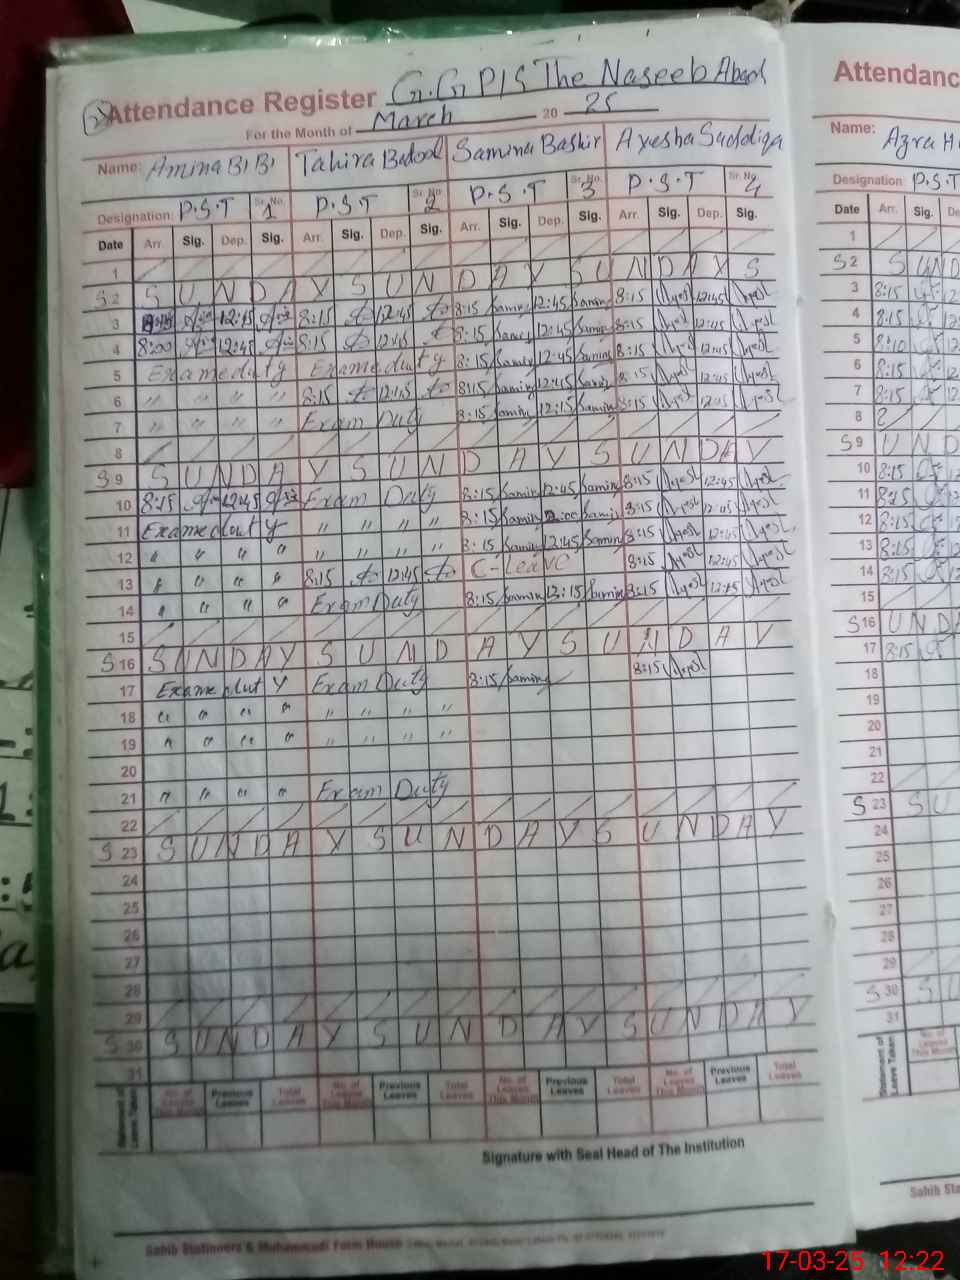 Attendance Register G.G P/S The Naseeb Abad
For the Month of March 20 25
Name: Amina BiBi Tahira Batool Samina Bashir Ayesha Saddiqa
Designation: P.S.T Sr. No. 1 P.S.T Sr. No. 2 P.S.T Sr. No. 3 P.S.T Sr. No. 4
Date Arr. Sig. Dep. Sig. Arr. Sig. Dep. Sig. Arr. Sig. Dep. Sig. Arr. Sig. Dep. Sig.
1
S 2 S U N D A Y S U N D A Y S U N D A Y S
3 12:45 8:15 12:45 8:15 Samina 12:45 Samina 8:15 12:45
4 8:00 12:45 8:15 12:45 8:15 Samina 12:45 Samina 8:15 12:45
5 Exame duty Exame duty 8:15 Samina 12:45 Samina 8:15 12:45
6 " " " " 8:15 12:45 8:15 Samina 12:45 Samina 8:15 12:45
7 " " " " Exam Duty 8:15 Samina 12:15 Samina 8:15 12:45
8
S 9 S U N D A Y S U N D A Y S U N D A Y
10 8:15 12:45 Exam Duty 8:15 Samina 12:45 Samina 8:15 12:45
11 Exame duty " " " " 8:15 Samina Samina 8:15 12:45
12 " " " " " " " " 8:15 Samina 12:45 Samina 8:15 12:45
13 " " " " 8:15 12:45 C-Leave 8:15 12:45
14 " " " " Exam Duty 8:15 Samina 12:15 Samina 8:15 12:45
15
S 16 S U N D A Y S U N D A Y S U N D A Y
17 Exame dut y Exam Duty 8:15 Samina 8:15
18 " " " " " " " "
19 " " " " " " " "
20
21 " " " " Exam Duty
22
S 23 S U N D A Y S U N D A Y S U N D A Y
24
25
26
27
28
29
S 30 S U N D A Y S U N D A Y S U N D A Y
31
Statement of Leave Taken No. of Leaves This Month Previous Leaves Total Leaves No. of Leaves This Month Previous Leaves Total Leaves No. of Leaves This Month Previous Leaves Total Leaves No. of Leaves This Month Previous Leaves Total Leaves
Signature with Seal Head of The Institution
Sahib Stationers & Muhammadi Form House
Attendanc
Name: Azra H
Designation: P.S.T
Date Arr. Sig. De
1
S 2 S U N D
3 8:15 12
4 8:15 12
5 8:10 12
6 8:15 12
7 8:15 12
8
S 9 U N D
10 8:15 12
11 8:15 12
12 8:15 12
13 8:15 12
14 8:15 12
15
S 16 U N D A
17 8:15
18
19
20
21
22
S 23 S U
24
25
26
27
28
29
S 30 S U
31
Statement of Leave Taken No. of Leaves This Month
Sahib Sta
17-03-25 12:22